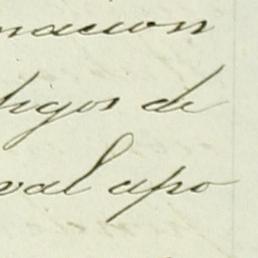 macion
tigos de
val apo